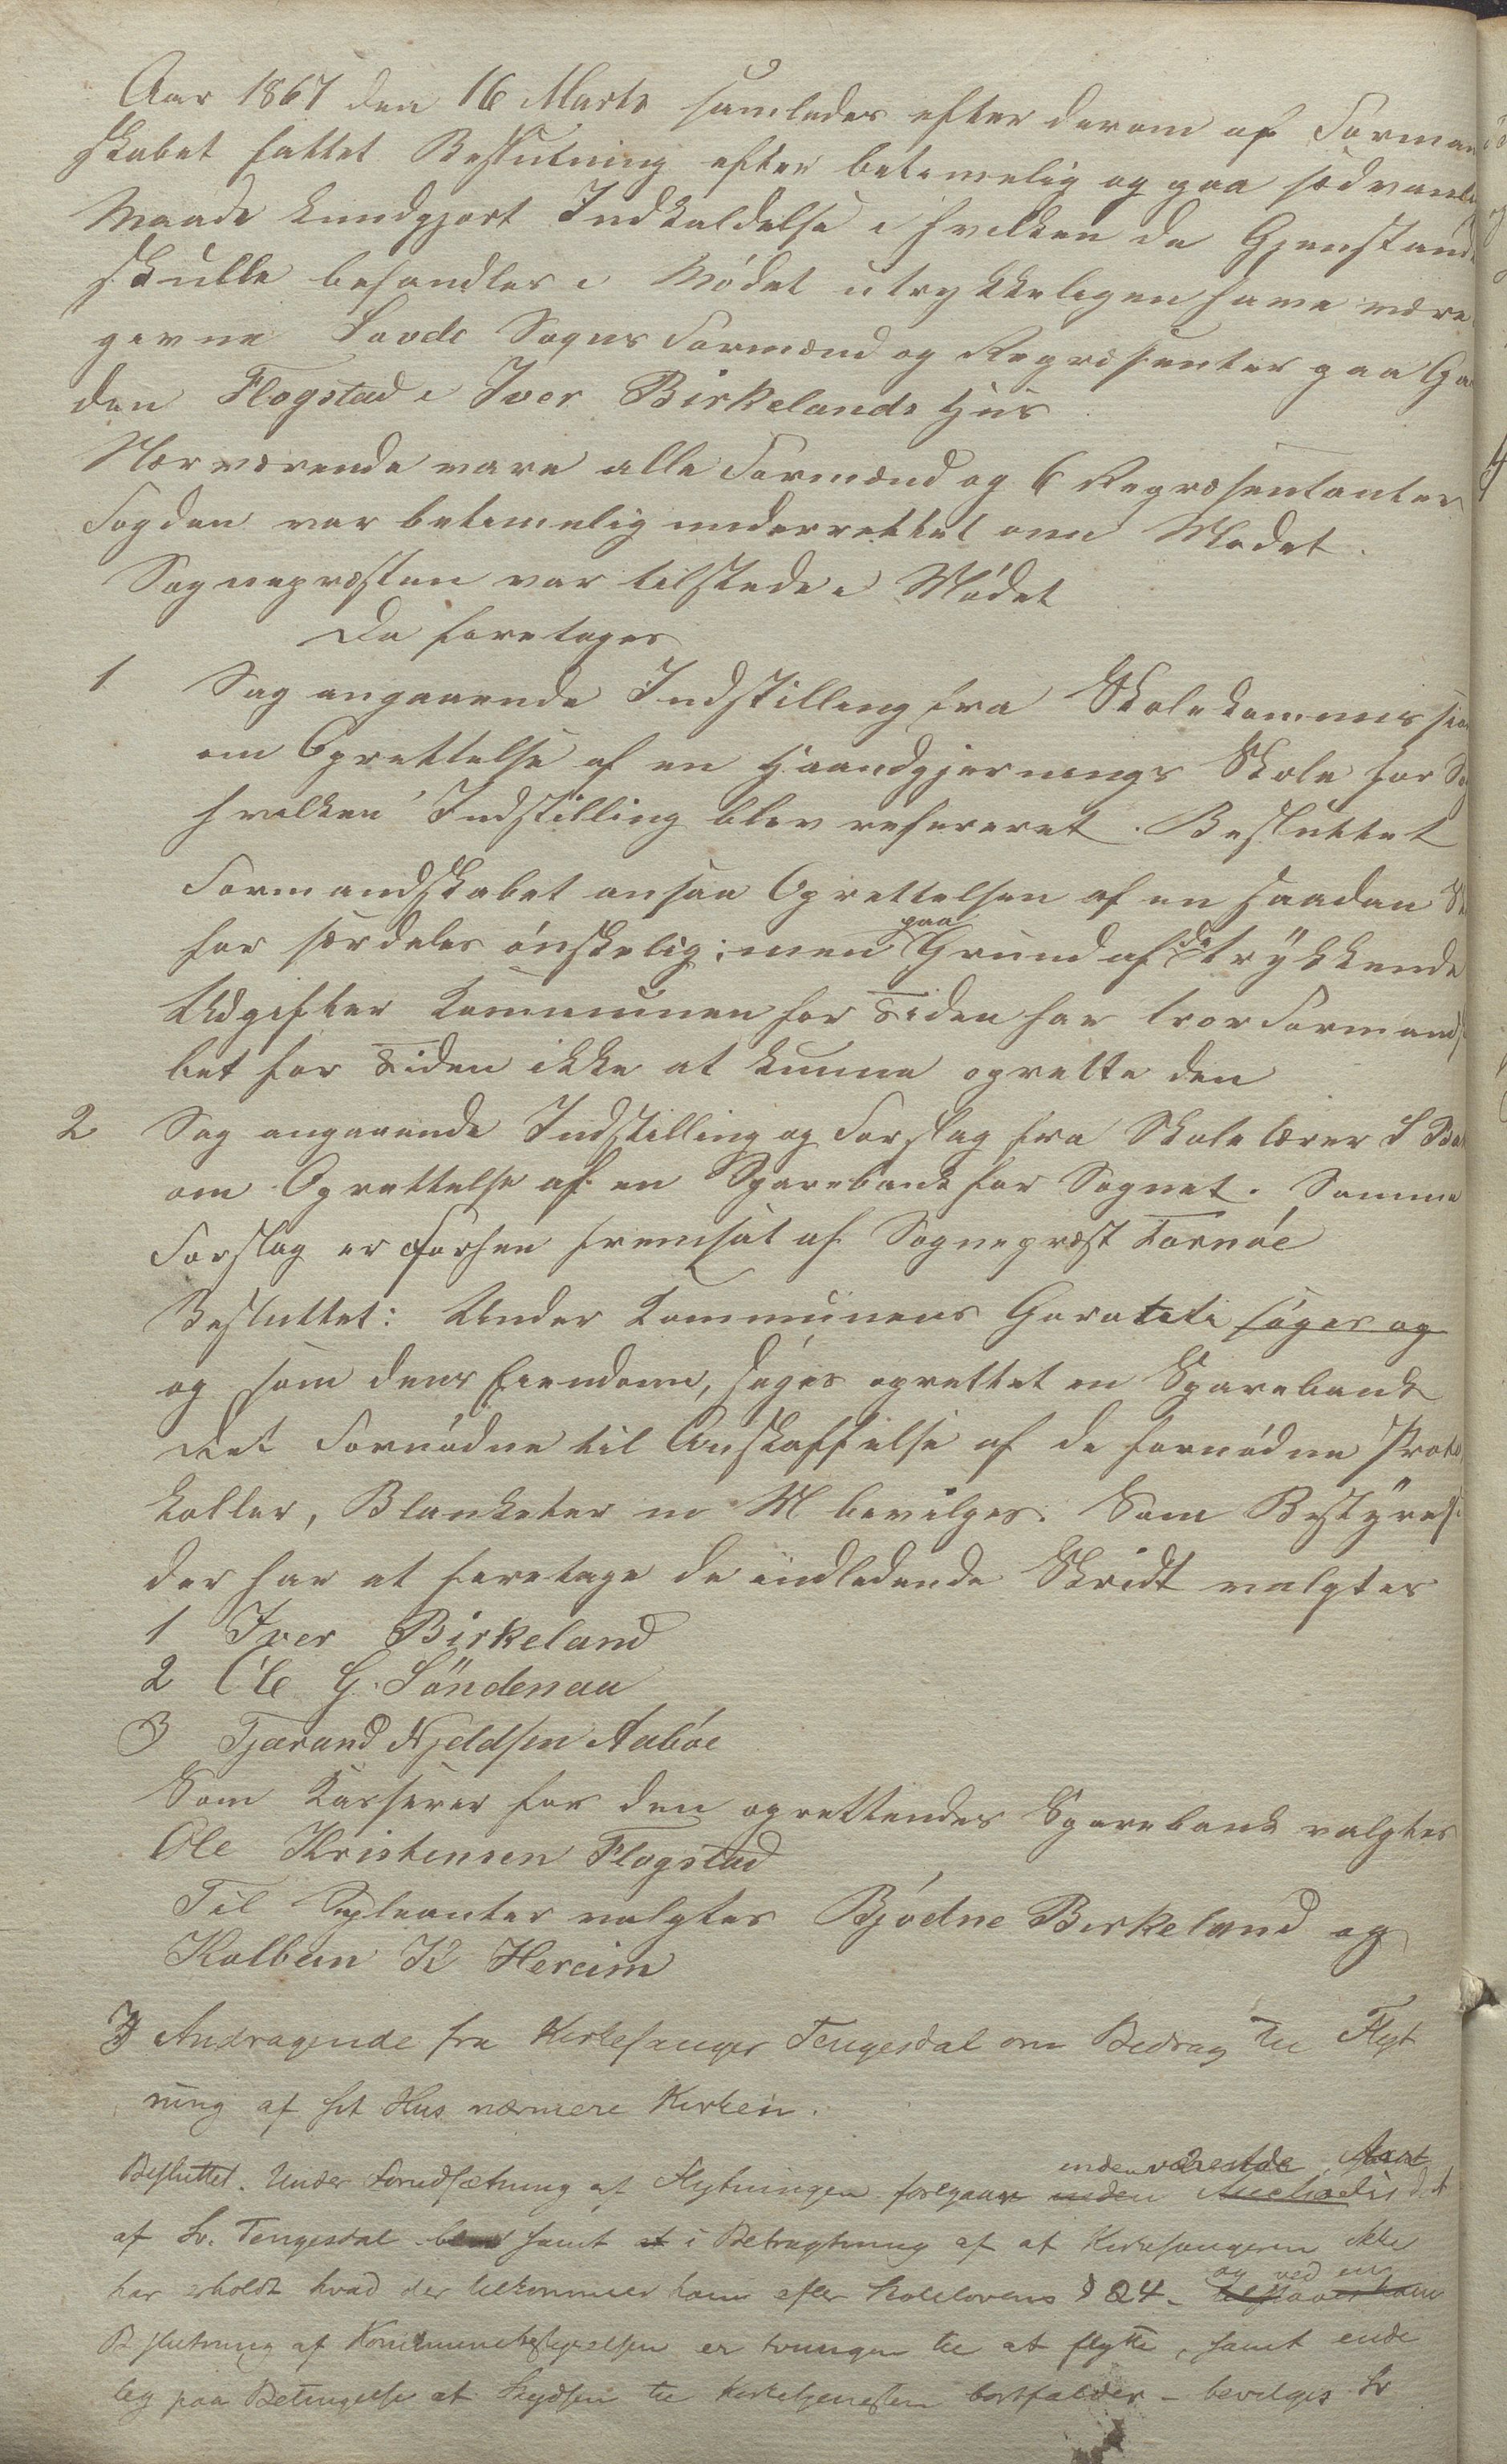 Aar 1867 den 16 Marts samledes efter derom af Forman
skabet fattet Beslutning efter betimelig og paa sædvanlig
Maade kundgjort Indkaldelse i hvilken de Gjenstande
skulle behandles i Mødet utrykkeligen have være
givne Sovde Sogns Formænd og Repræsenter paa Ga
den Flogstad i Iver Birkelands Hus
Nærværende vare alle Formænd og 6 Repræsentanter
Fogden var betimelig underrettet om Mødet.
Sognepræsten var tilstede i Mødet
Da foretoges
1 Sag angaaende Indstilling fra Skolekommission
om Oprettelse af en Haandgjernings Skole for So
hvilken Indstilling blev refereret. Besluttet
Formandskabet ansaa Oprettelsen af en saadan Sk
for særdeles ønskelig; men paa Grund af de trykkende
Udgifter Kommunen for Tiden har tror Formands
bet for Tiden ikke at kunne oprette den
2 Sag angaaende Indstilling og Forslag fra Skolelærer S Ba
om Oprettelse af en Sparebank for Sognet. Samme
Forslag er forhen fremsat af Sognepræst Tornøe
Besluttet: Under Kommunens Garatiti søges og
og som dens Eiendom, søges oprettet en Sparebank
Det Fornødne til Anskaffelse af de fornødne Proto
koller, Blanketer m M bevilges. Som Bestyrelse
der har at foretage de indledende Skridt valgtes
1 Iver Birkeland
2 Ole G. Söndenaa
3 Tjerand Kjeldsen Aabøe
Som Kasserer for den oprettendes Sparebank valgtes
Ole Kristensen Flogstad
Til Supleanter valgtes Bjødne Birkeland og
Kolbein K Hereim
3 Andragende fra Kirkesanger Tengesdal om Bedrag til Flyt
ning af sit Hus nærmere Kirken.
Besluttet. Under Forudsætning at Flytningen foregaar inden
af Hr. Tengesdal samt at i Betragtning af at Kirkesangeren ikke
har erholdt hvad der tilkommer ham efter Skolelovens § 24 - og ved en
Beslutning af Kommunebestyrelsen er tvungen til at flytte, samt ende
lig paa Betingelse at Skydsen til Kirketjenesten bortfalder - bevilges Hr